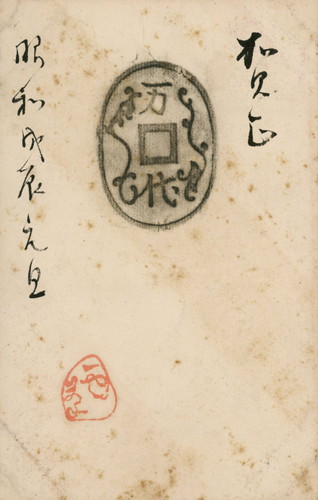 賀正
万
代
昭和戊辰元旦